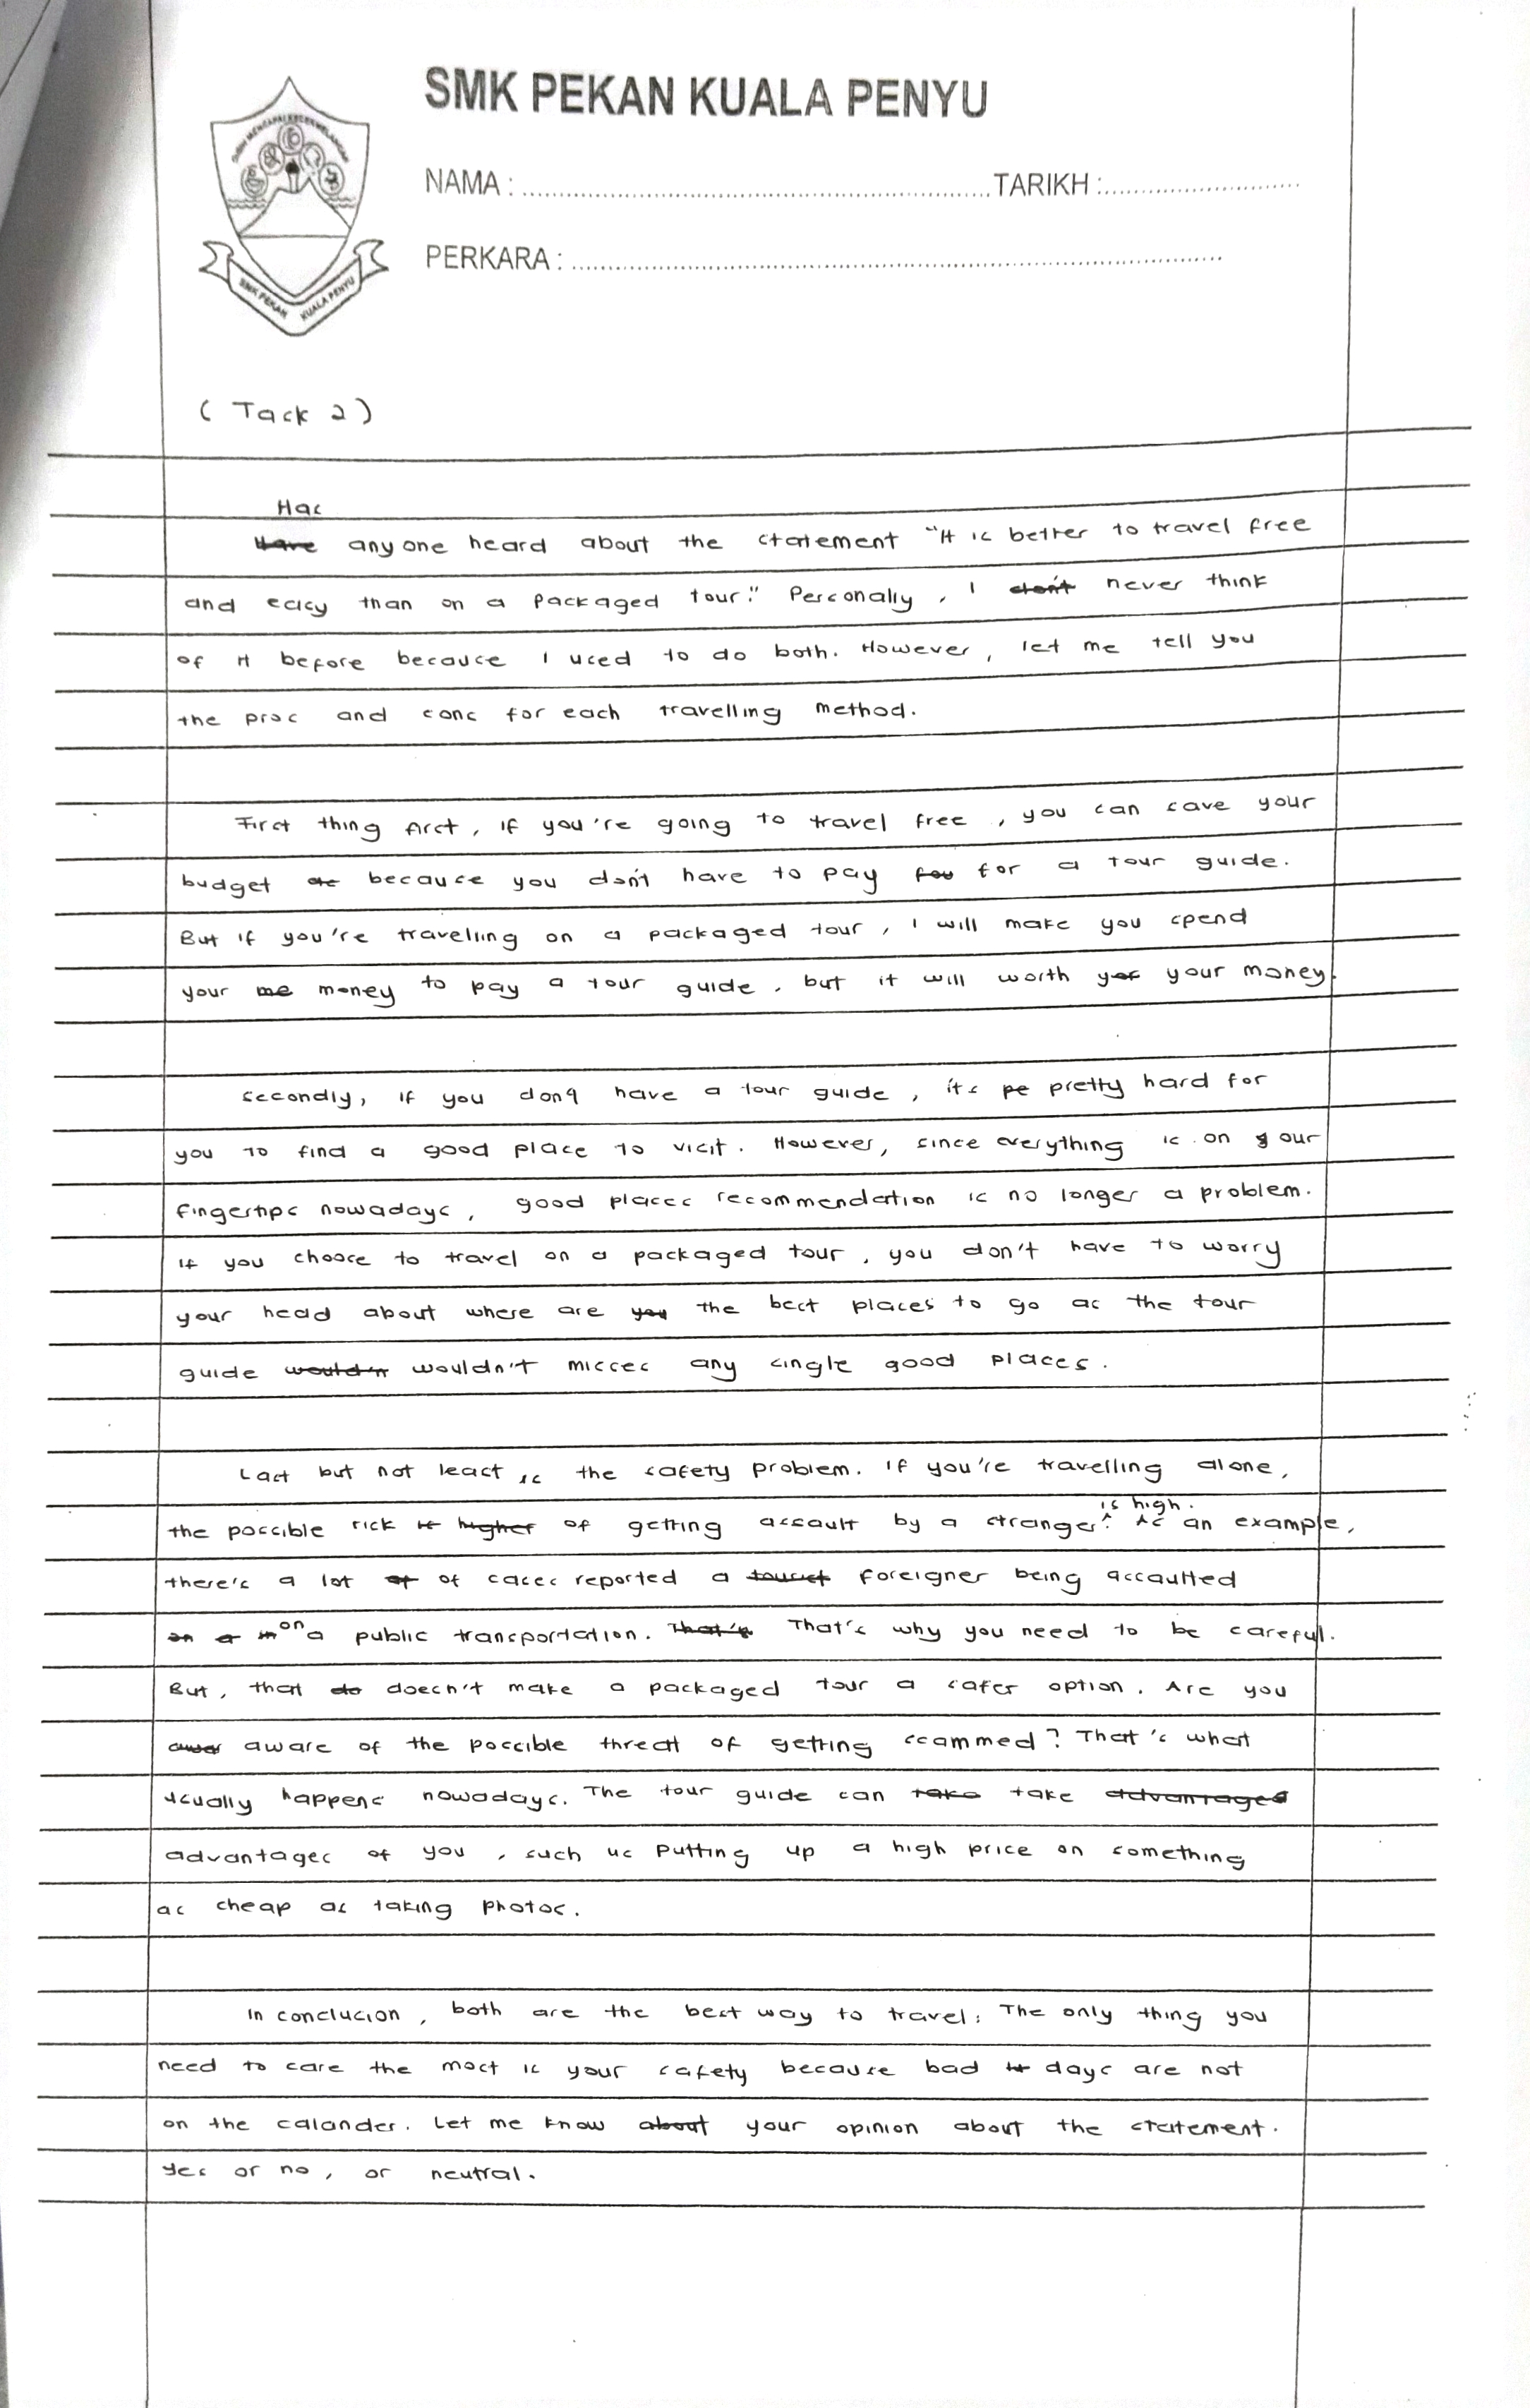 SMK PEKAN KUALA PENYU
NAMA : ........................ TARIKH : ..............
PERKARA : ........................
SMK PEKAN KUALA PENYU
( Task 2 )
Has
Have anyone heard about the statement "It is better to travel free
and easy than on a packaged tour." Personally, I don't never think
of it before because I used to do both. However, let me tell you
the pros and cons for each travelling method.
First thing first, if you're going to travel free, you can save your
budget because you don't have to pay for a tour guide.
But if you're travelling on a packaged tour, I will make you spend
your me money to pay a tour guide, but it will worth your money.
Secondly, if you don't have a tour guide, its pe pretty hard for
you to find a good place to visit. However, since everything is on your
fingertips nowadays, good places recommendation is no longer a problem.
If you choose to travel on a packaged tour, you don't have to worry
your head about where are you the best places to go as the tour
guide would'n wouldn't misses any single good places.
Last but not least is the safety problem. If you're travelling alone,
is high.
the possible risk is higher of getting assault by a stranger. As an example,
there's a lot of of cases reported a tourist foreigner being assaulted
on a public transportation. That's That's why you need to be careful.
But, that do doesn't make a packaged tour a safer option. Are you
aware of the possible threat of getting scammed? That's what
usually happens nowadays. The tour guide can take take advantages
advantages of you, such us putting up a high price on something
as cheap as taking photos.
In conclusion, both are the best way to travel. The only thing you
need to care the most is your safety because bad days are not
on the calander. Let me know about your opinion about the statement.
Yes or no, or neutral.